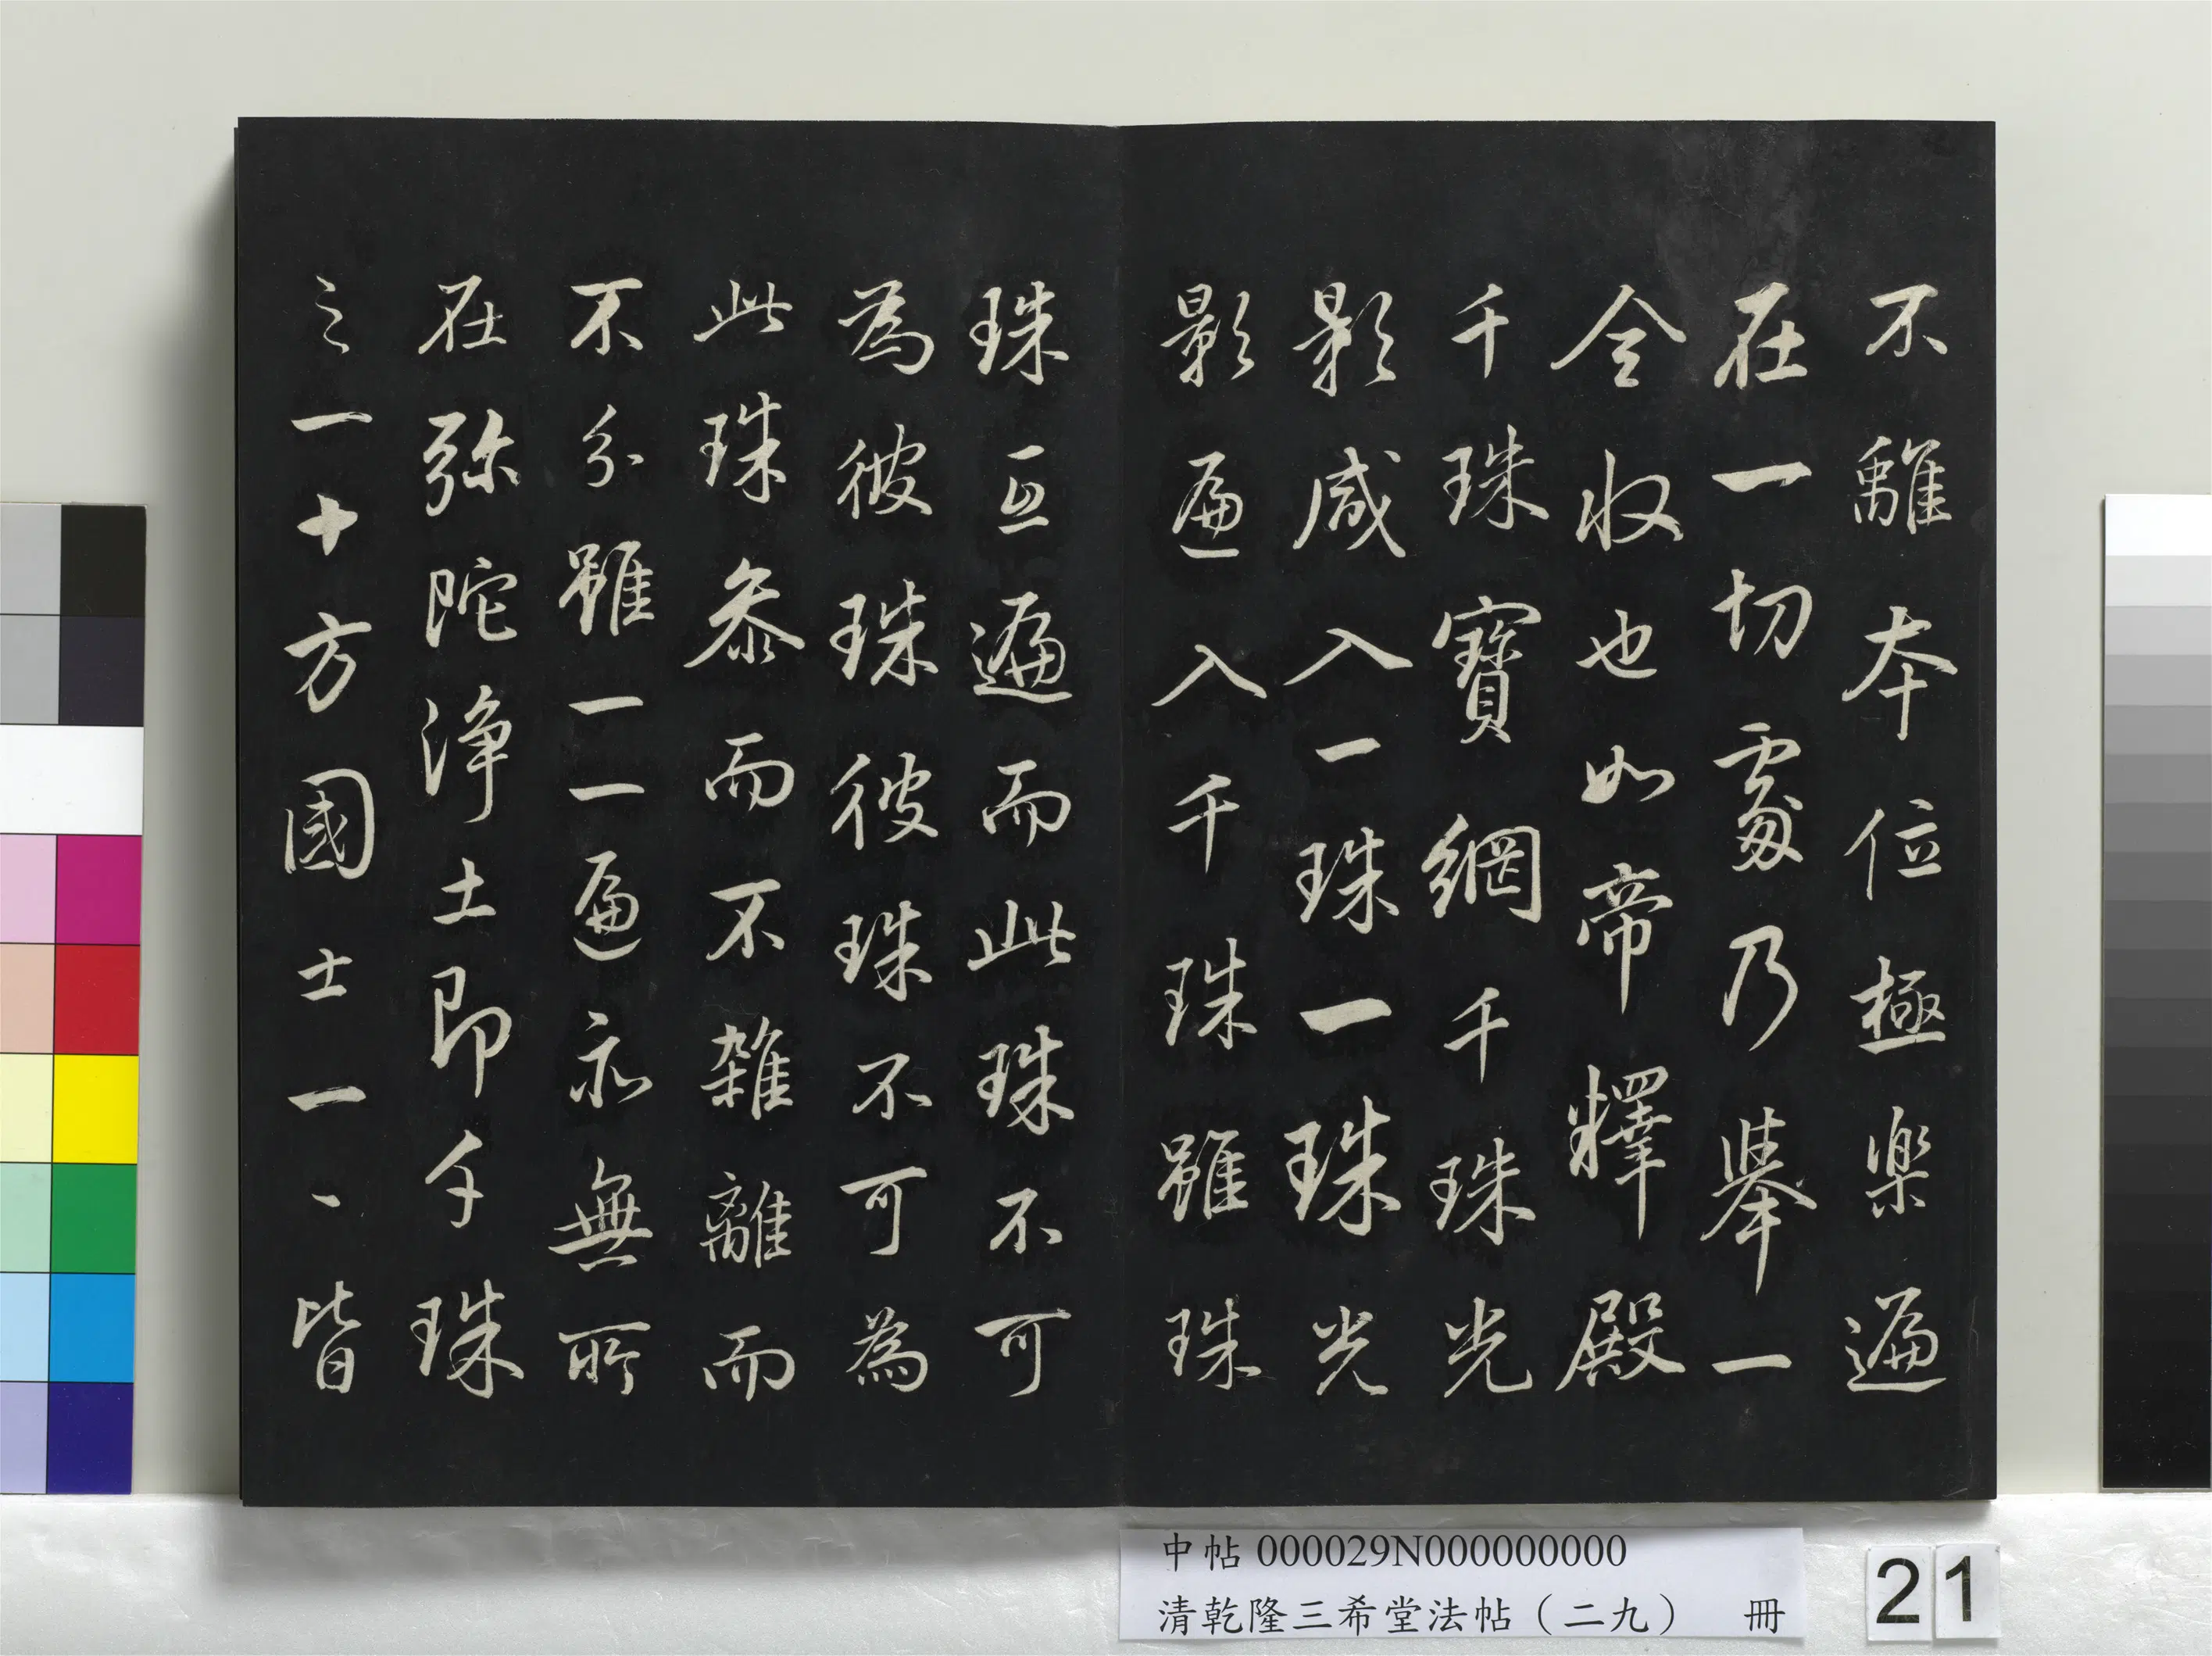 不離本位極樂遍
在一切處乃舉一
全收也如帝釋殿
千珠寶網千珠光
影咸入一珠一珠光
影遍入千珠雖珠
珠互遍而此珠不可
為彼珠彼珠不可為
此珠參而不雜離而
不分雖一一遍亦無所
在弥陀淨土即千珠
之一十方國土一一皆
中帖 000029N000000000
清乾隆三希堂法帖（二九） 冊
21